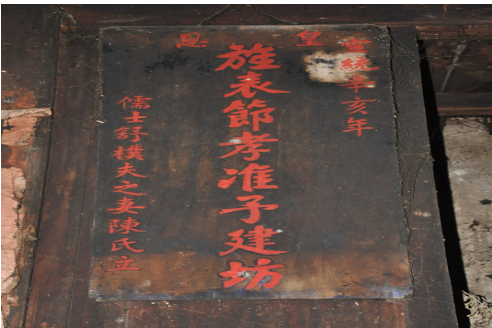 皇恩
宣統辛亥年
旌表節孝准予建坊
儒士舒樸夫之妻陳氏立